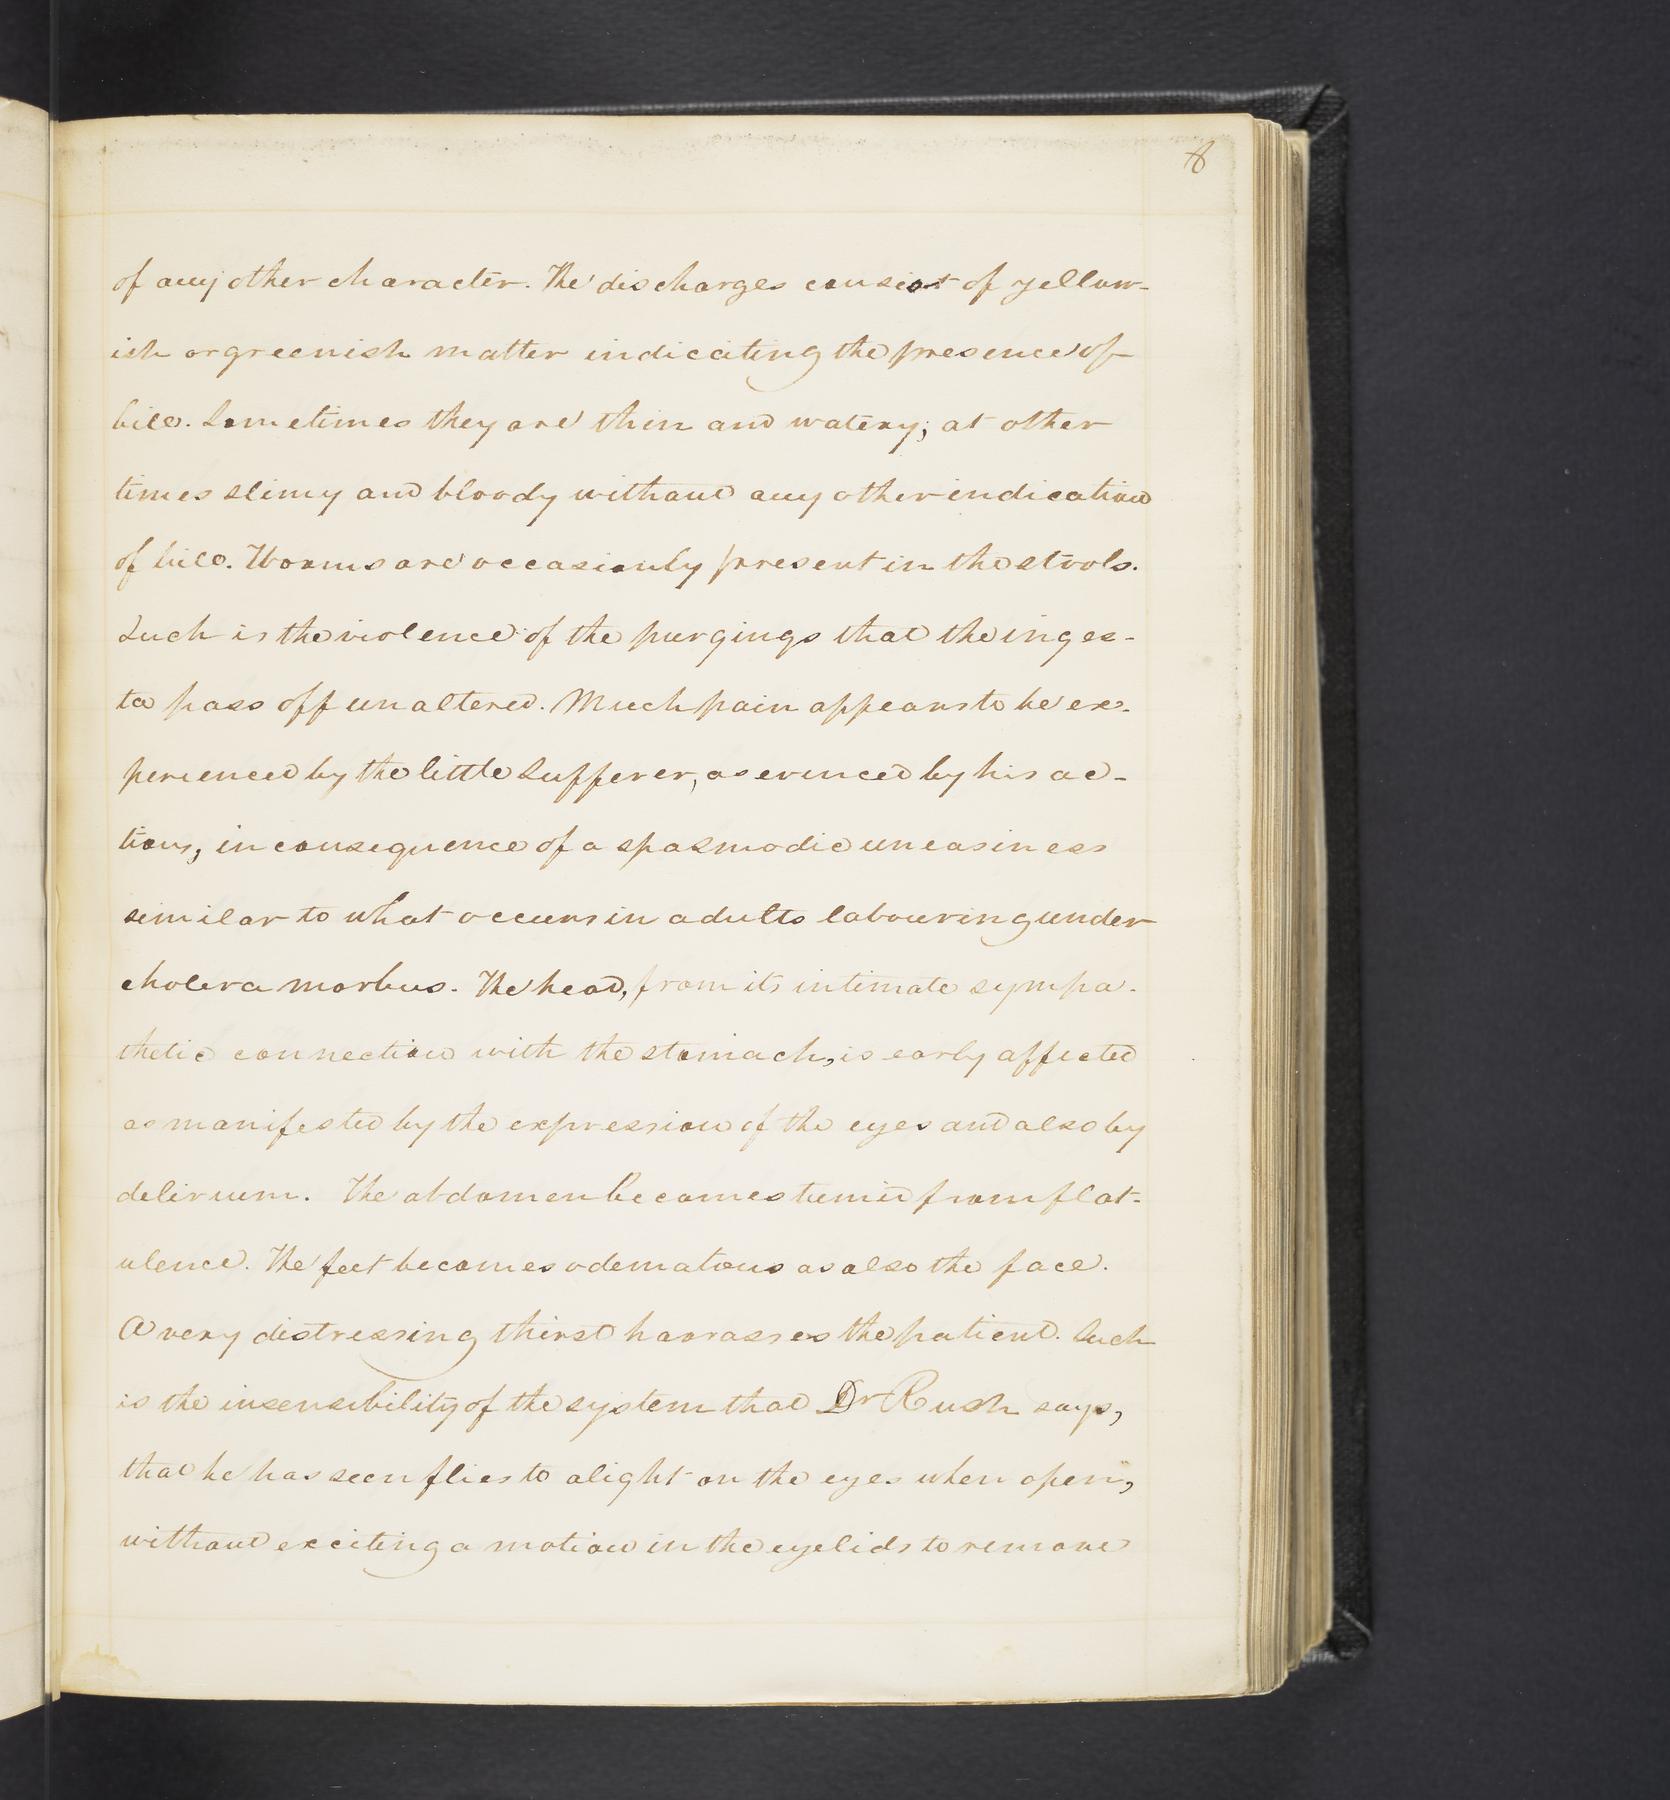 8
of any other character. The discharges consist of yellow-
ish or greenish matter indicating the presence of
bile. Sometimes they are thin and watery; at other
times slimy and bloody without any other indication
of bile. Worms are occasionly present in the stools.
Such is the violence of the purgings that the inges-
ta pass off unaltered. Much pain appears to be ex-
perienced by the little Sufferer, as evinced by his ac-
tions, in consequence of a spasmodic uneasiness
similar to what occurs in adults labouring under
cholera morbus. The head, from its intimate sympa-
thetic connection with the stomach, is early affected
as manifested by the expression of the eyes and also by
delirium. The abdomen becomes tumid from flat-
ulence. The feet becomes odematous as also the face.
A very distressing thirst harrasses the patient. Such
is the insensibility of the system that Dr Rush says,
that he has seen flies to alight on the eyes when open,
without exciting a motion in the eyelids to remove